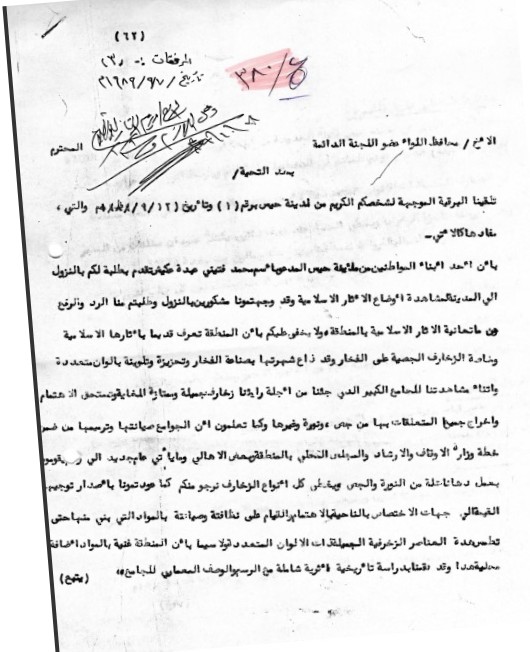 (٦٢)
المرفقات :- (٣)
تاريخ /
٣٨٠/ع
الاخ / محافظ اللواء عضو اللجنة الدائمة المحترم
بعد التحية /
تلقينا البرقية الموجهة لشخصكم الكريم من لمدينة حيس برقم (١) وتاريخ (١٢/٩/ والتي ،
مفادها كالاتي -
بأن احد ابناء المواطنين من مدينة حيس المدعو باسم محمد فتيني عبدة تقدم بطلبة لكم بالنزول
الي المدينة لمشاهدة اوضاع الاثار الاسلامية وقد وجهتمونا مشكورين بالنزول وطلبتم منا الرد والرفع
عن ماتعانية الاثار الاسلامية بالمنطقة ولا يخفى عليكم بأن المنطقة تعرف قديما بأثارها الاسلامية
وخاصة الزخارف الجصية على الفخار وقد ذاع شهرتها بصناعة الفخار وتحزيزة وتلوينة بالوان متعددة
واثناء مشاهدتنا للجامع الكبير الذي جئنا من اجلة رأيتنا زخارف جميلة وممتازة للغاية وتستحق الاهتمام
واخراج جميع المتعلقات بها من جص ونورة وغيرها وكما تعلمون ان الجوامع صيانتها وترميمها من ضمن
خطة وزارة الاوقاف والارشاد والمجلس المحلي بالمنطقة وبعض الاهالي ومايأتي عام جديد الي ويقومون
بعمل دهانات لة من النورة والجص ويغطى كل انواع الزخارف نرجو منكم كما عودتمونا باصدار توجيهاتكم
الي جهات الاختصاص بالناحية بالاهتمام التام على نظافتة وصيانتة بالمواد التي بني منها حتى
تطمس هذة العناصر الزخرفية الجميلة ذات الالوان المتعددة ولا سيما بأن المنطقة غنية بالمواد اضافة
محلية هذا وقد قمنا بدراسة تأريخية أثرية شاملة مع الرسم والوصف المعماري للجامع
(يتبع)